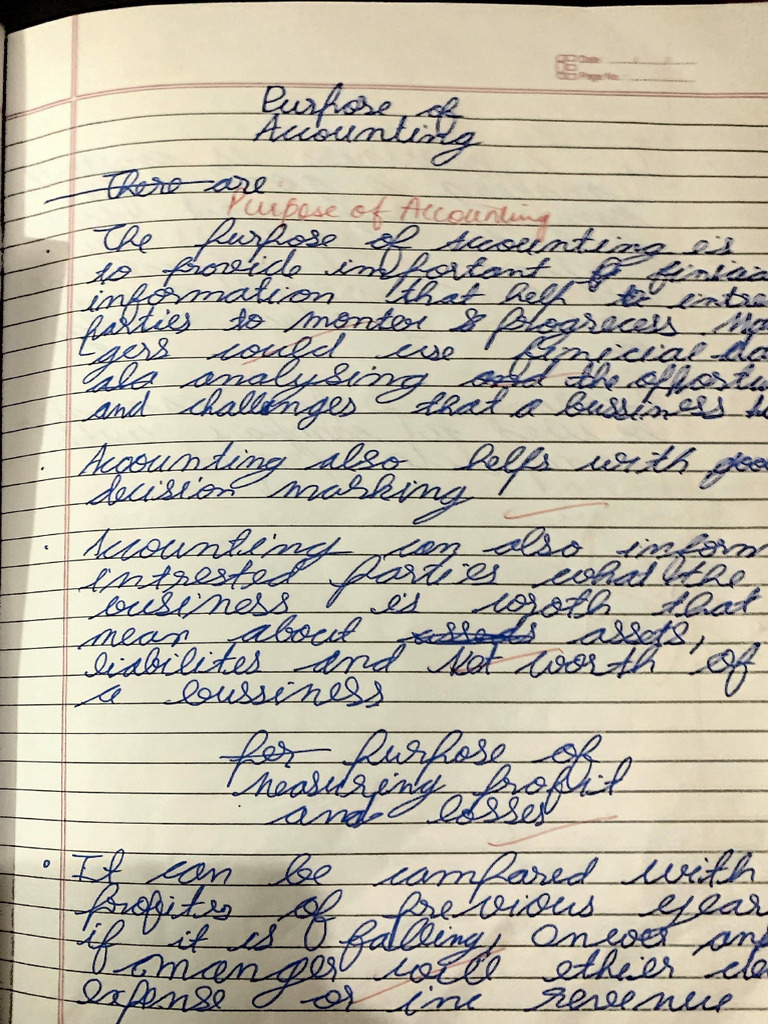 Date
Page No.
Purpose of
Accounting
There are
Purpose of Accounting
The purpose of accounting is
to provide important finicia
information that help to intre
parties to monter & progrecess Ma
gers could use finicial da
als analysing and the opportu
and challenges that a bussiness h
Accounting also helps with good
decision marking
Accounting can also inform
intrested parties what the
business is woroth that
mean about assets,
liabilites and Net worth of
a bussiness
for purpose of
measuring profit
and losses
It can be campared with
profits of previous year
if it is falling, Oncoer an
manger will ethier de
expense or inc revenue